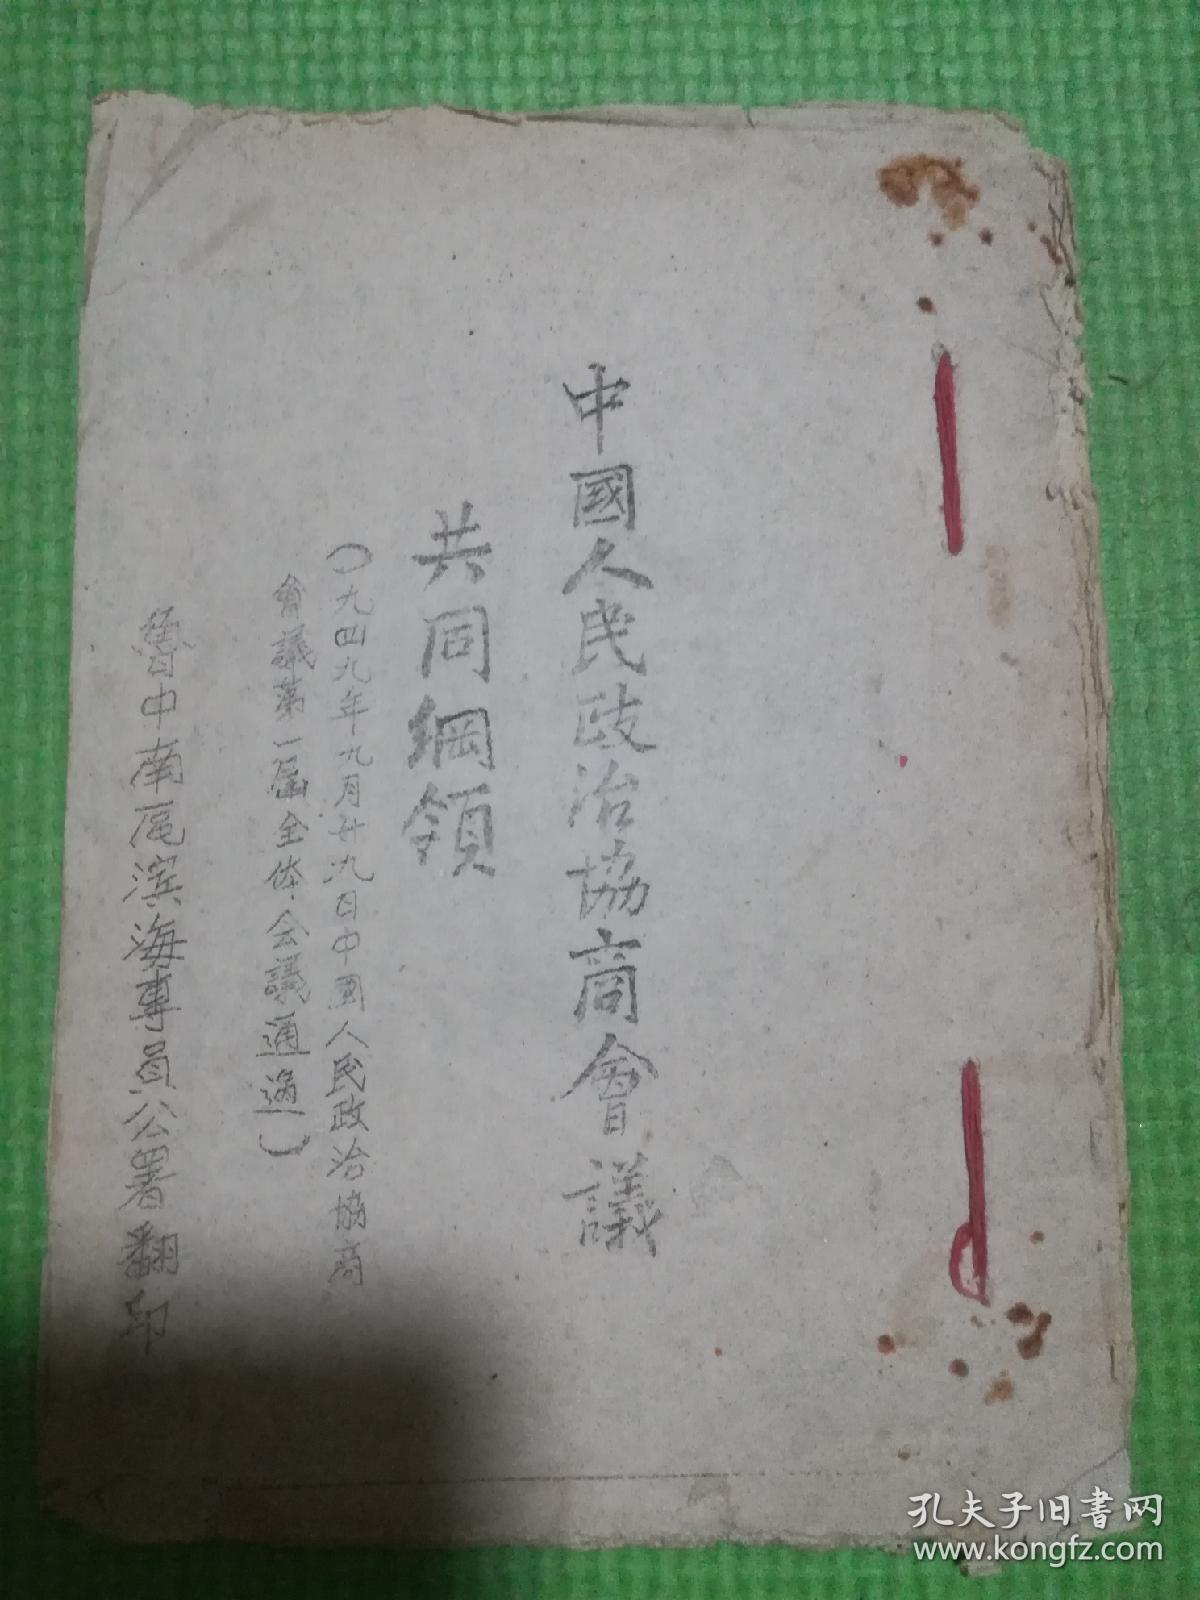 中國人民政治協商會議
共同綱領
(一九四九年九月廿九日中国人民政治協商
會議第一届全体会議通過)
魯中南區滨海專員公署翻印
孔夫子旧书网
www.kongfz.com